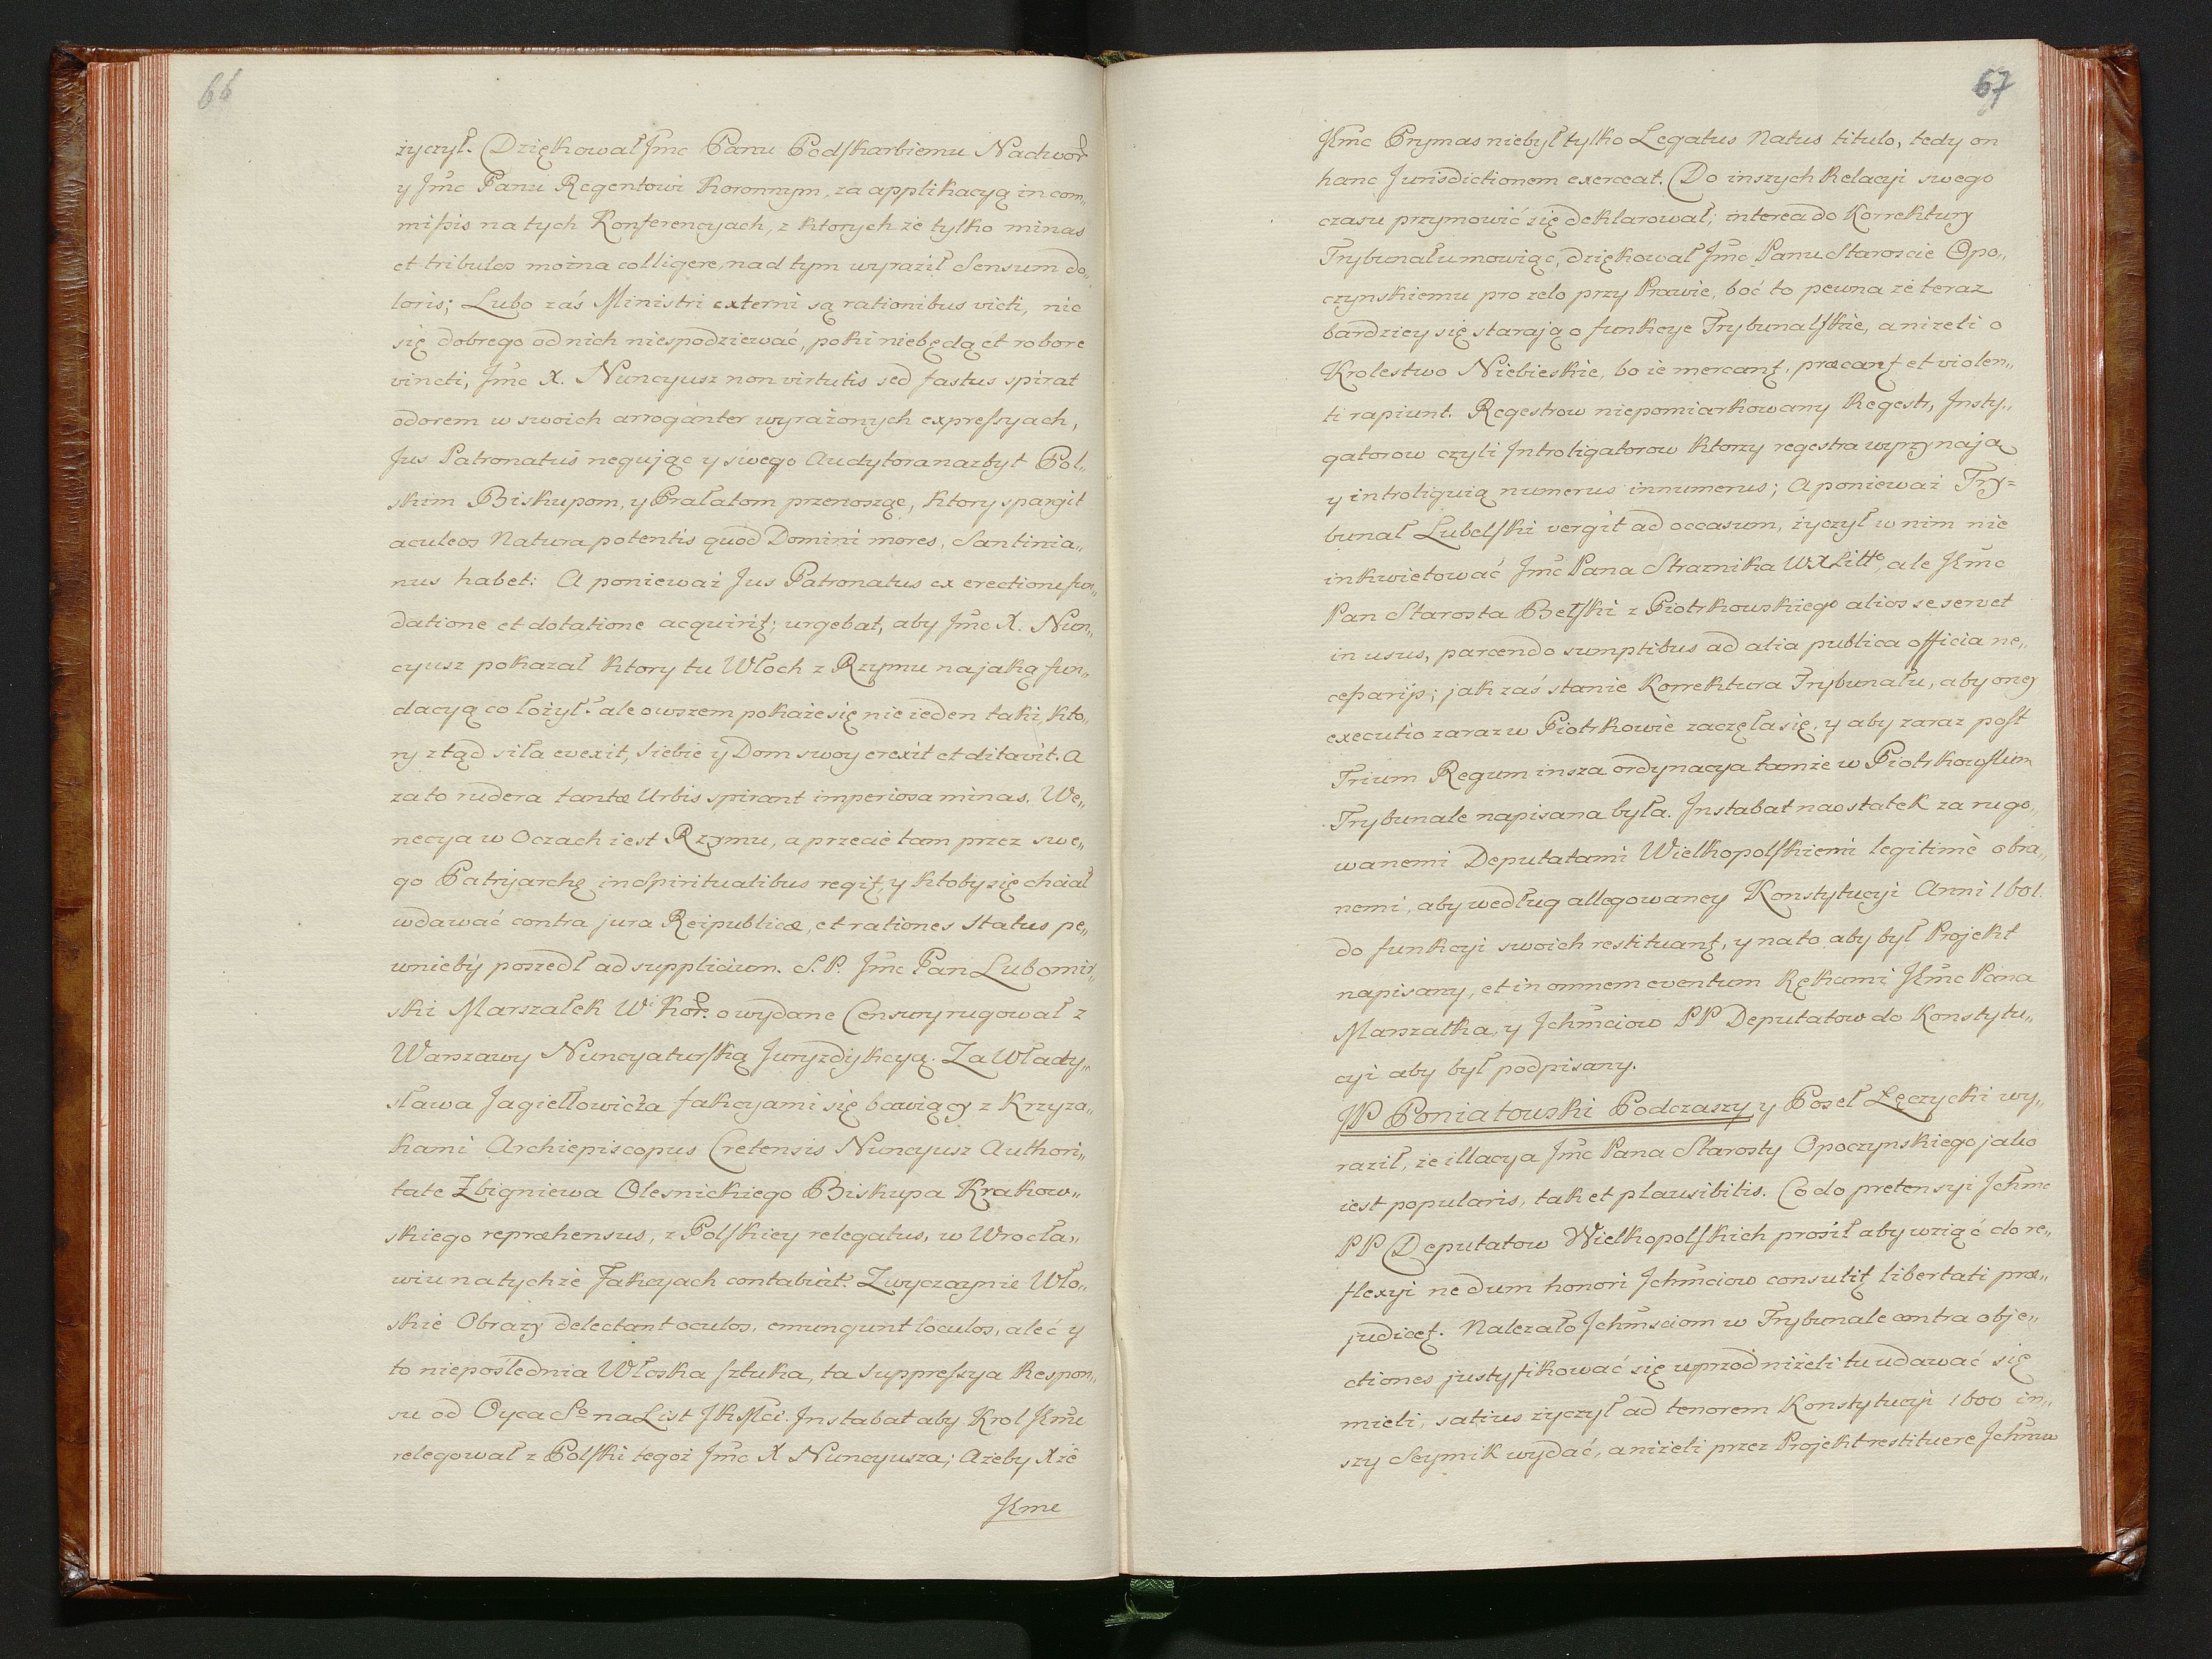 66
życzył. Dziękował Jmc Panu Podskarbiemu Nadwor
y Jmc Panu Regentowi Koronnym, za applikacyą in com„
missis na tych Konferencyach, z ktorych że tylko minas
et tribulos można colligere, nad tym wyraził Sensum do„
loris; Lubo zaś Ministri externi są rationibus victi, nic
się dobrego od nich niespodziewać, poki niebędą et robore
vincti, Jmc X. Nuncyusz non virtutis sed fastus spirat
odorem w swoich arroganter wyrażonych expressyach,
Jus Patronatus negując y swego Audytora nazbyt Pol„
skim Biskupom, y Prałatom przenosząc, ktory spargit
aculeos Natura potentis quod Domini mores, Santinia„
nus habet: A ponieważ Jus Patronatus ex erectione fun„
datione et dotatione acquirit; urgebat, aby Jmc X. Nun„
cyusz pokazał ktory tu Włoch z Rzymu na jaką fun„
dacyą co łożył? ale owszem pokaże się nie ieden taki, kto„
ry ztąd siła evexit, siebie y Dom swoy erexit et ditavit. A
za to rudera tantæ Urbis spirant imperiosa minas. We„
necya w Oczach iest Rzymu, a przecie tam przez swe„
go Patryarchę in Spiritualibus regit, y ktoby się chciał
wdawać contra jura Reipublicæ, et rationes Status pe„
wnieby poszedł ad supplicium. S.P. Jmc Pan Lubomir„
ski Marszałek W. Kor. o wydane Censury rugował z
Warszawy Nuncyaturską Juryzdykcyą. Za Włady„
sława Jagiełłowicza fakcyami się bawiący z Krzyża„
kami Archiepiscopus Cretensis Nuncyusz Authori„
tate Zbigniewa Olesnickiego Biskupa Krakow„
skiego repræhensus, z Polskiey relegatus, w Wrocła„
wiu na tychże Fakcyach contabuit. Zwyczaynie Wło„
skie Obrazy delectant oculos, emungunt loculos, aleć y
to niepoślednia Włoska sztuka, ta Suppressya Respon„
su od Oyca So na List JKMci. Instabat aby Krol Jmc
relegował z Polski tegoż Jmc X Nuncyusza; Ażeby Xże
Jmc
67
Jmc Prymas niebył tylko Legatus Natus titulo, tedy on
hanc Jurisdictionem exerceat. Do inszych Relacyi swego
czasu przymowić się deklarował; interea do Korrektury
Trybunału mowiąc, dziękował Jmc Panu Staroscie Opo„
czynskiemu pro zelo przy Prawie, boć to pewna że teraz
bardziey się starają o funkcye Trybunalskie, a niżeli o
Krolestwo Niebieskie, bo ie mercant, præcant et violen„
ti rapiunt. Regestrow niepomiarkowany Regestr, Insty„
gatorow czyli Introligatorow ktorzy regestra wyrzynają
y introliguią numerus innumerus; A ponieważ Try=
bunał Lubelski vergit ad occasum, życzył w nim nie
inkwietować Jmc Pana Straznika WXLitto, ale Jmc
Pan Starosta Bełski z Piotrkowskiego alios se servet
in usus, parcendo sumptibus ad alia publica officia ne„
cessarijs; jak zaś stanie Korrektura Trybunału, aby oney
executio zaraz w Piotrkowie zaczęła się, y aby zaraz post
Trium Regum insza ordynacya tamże w Piotrkowskim
Trybunale napisana była. Instabat na ostatek za rugo„
wanemi Deputatami Wielkopolskiemi legitimè obra„
nemi, aby według allegowaney Konstytucyi Anni 1601.
do funkcyi swoich restituant, y na to aby był Projekt
napisany, et in omnem eventum Rękami Jmc Pana
Marszałka, y Ichmciow PP Deputatow do Konstytu„
cyi aby był podpisany.
JP Poniatowski Podczaszy y Poseł Łęczycki wy„
raził, że illacya Jmc Pana Starosty Opoczynskiego jako
iest popularis, tak et plausibilis. Co do pretensyi Ichmc
PP Deputatow Wielkopolskich prosił aby wziąć do re„
flexyi ne dum honori Ichmciow consulit libertati præ„
judicet. Należało Ichmsciom w Trybunale contra obje„
ctiones justyfikować się wprzod niżeli tu udawać się
mieli, satius życzył ad tenorem Konstytucyi 1600 in„
szy Seymik wydać, aniżeli przez Projekt restituere Ichmw